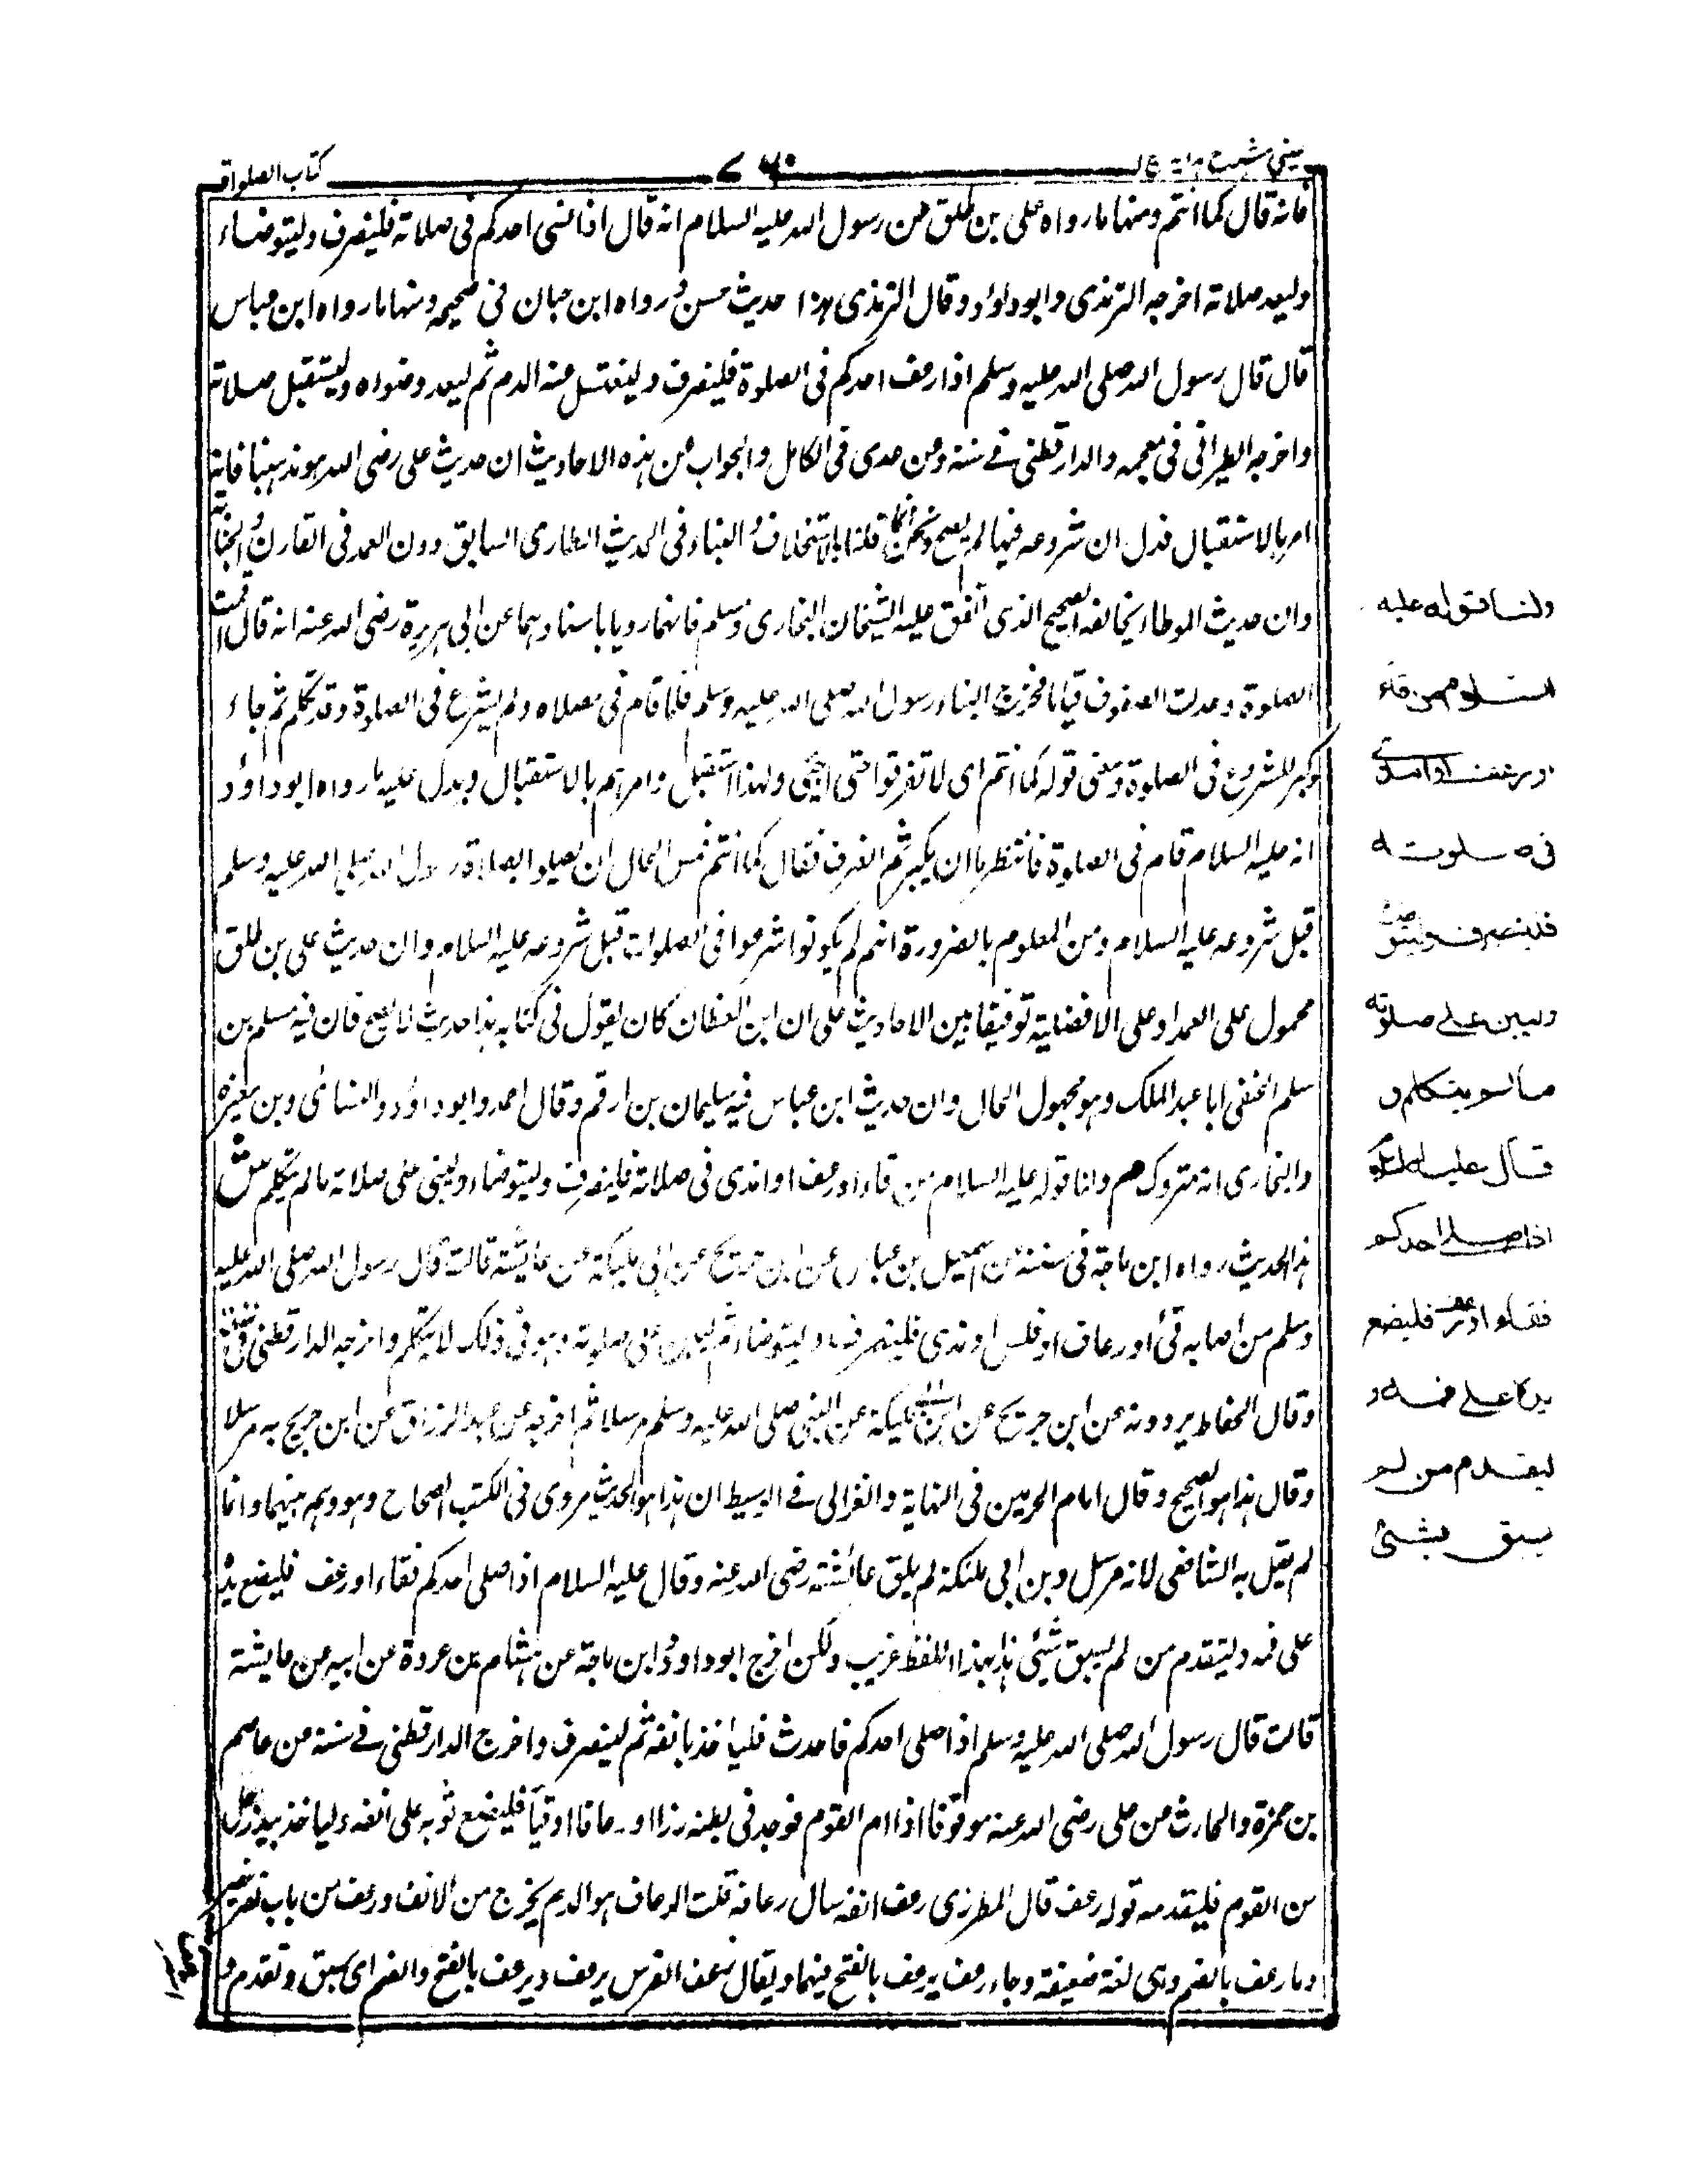 كتاب الصلواة
فانه قال كما انتم ومنها ما رواه على بن طلق عن رسول الله عليه السلام انه قال اذا فسى احدكم فى صلاته فلينصرف وليتوضاء
وليعد صلاته اخرجه الترمذى وابو داود وقال الترمذى هذا حديث حسن ورواه ابن حبان فى صحيحه ومنها ما رواه ابن عباس
قال قال رسول الله صلى الله عليه وسلم اذا رعف احدكم فى الصلوة فلينصرف وليغتسل عنه الدم ثم ليعد وضواه وليستقبل صلاته
واخرجه الطبرانى فى معجمه والدارقطنى فى سننه ومن عدى فى الكامل والجواب عن هذه الاحاديث ان حديث على رضى الله هو مذهبنا فانه
امر بالاستقبال فدل ان شروعه فيها لم يصح ونحن قلنا بالاستخلاف والبناء فى الحديث الطارى السابق دون العمد فى القارن
وان حديث الموطا يخالفه الصحيح الذى اتفق عليه الشيخان البخارى ومسلم فانهما رويا باسنادهما عن ابى هريرة رضى الله عنه انه قال اقمت
الصلوة وعدلت الصفوف قياما فخرج الينا رسول الله صلى الله عليه وسلم فلما قام فى مصلاه ولم يشرع فى الصلوة وقد تكلم ثم جاء
وكبر للشروع فى الصلوة ومعنى قوله كما انتم اى لا تفرقوا حتى اجئى ولهذا استقبل وامرهم بالاستقبال ويدل عليه ما رواه ابو داؤد
انه عليه السلام قام فى الصلوة فانتظرنا ان يكبر ثم انصرف فقال كما انتم فمن المحال ان يصلوا بصلاة رسول الله صلى الله عليه وسلم
قبل شروعه عليه السلام ومن المعلوم بالضرورة انهم لم يكونوا شرعوا فى الصلوات قبل شروعه عليه السلام وان حديث على بن طلق
محمول على العمد او على الافضلية توفيقا بين الاحاديث على ان ابن القطان كان يقول فى كتابه هذا حديث لا يصح فان فيه مسلم بن
سلم الحنفى ابا عبد الملك وهو مجهول الحال وان حديث ابن عباس فيه سليمان بن ارقم وقال احمد وابو داؤد والنسائى وبن
والبخارى انه متروك م ولنا قوله عليه السلام من قاء او رعف او امذى فى صلاته فلينصرف وليتوضاء وليبنى على صلاته ما لم يتكلم ش
هذا الحديث رواه ابن ماجة فى سننه عن اسمعيل بن عياش عن ابن جريج عن ابى مليكة عن عايشة قالت قال رسول الله صلى الله عليه
وسلم من اصابه قئ او رعاف او قلس او مذى فلينصرف وليتوضاء ثم ليبن على صلوته وهو فى ذلك لا يتكلم واخرجه الدارقطنى
وقال الحفاظ يردونه عن ابن جريج عن ابن مليكة عن النبى صلى الله عليه وسلم مرسلا ثم اخرجه عن عبد الرزاق عن ابن جريج به مرسلا
وقال هذا هو الصحيح وقال امام الحرمين فى النهاية والغزالى فى الوسيط ان هذا هو الحديث مروى فى الكتب الصحاح وهو وهم منهما وانما
لم يقل به الشافعى لانه مرسل وبن ابى ملنكة لم يلق عائشة رضى الله عنه وقال عليه السلام اذا صلى احدكم فقاء او رعف فليضع يده
على فمه وليتقدم من لم يسبق شيئى هذا بهذا اللفظ غريب ولكن اخرج ابو داود وابن ماجة عن هشام بن عروة عن ابيه عن عايشة
قالت قال رسول الله صلى الله عليه وسلم اذا صلى احدكم فاحدث فلياخذ بانفه ثم لينصرف واخرج الدارقطنى فى سننه عن عاصم
بن حمزة والحارث عن على رضى الله عنه موقوفا اذا ام القوم فوجد فى بطنه رزا او رعافا او قيأ فليضع ثوبه على انفه ولياخذ بيد رجل
من القوم فليقدمه قوله رعف قال المطرزى رعف انفه سال رعافه قلت الرعاف هو الدم يخرج من الانف ورعف من باب نصر ينصر
وما رعف بالضم وهى لغة ضعيفة وجاء رعف يرعف بالفتح فيهما ويقال رعف الفرس يرعف ويرعف بالفتح والضم اى سبق وتقدم
ولنا قوله عليه
السلام من قاء
او رعف او امذى
فى صلوته
فلينصرف وليتوضأ
وليبن على صلوته
مالم يتكلم و
قال عليه السلام
اذا صلى احدكم
فقاء او رعف فليضع
يده على فمه و
ليقدم من لم
يسبق بشئ